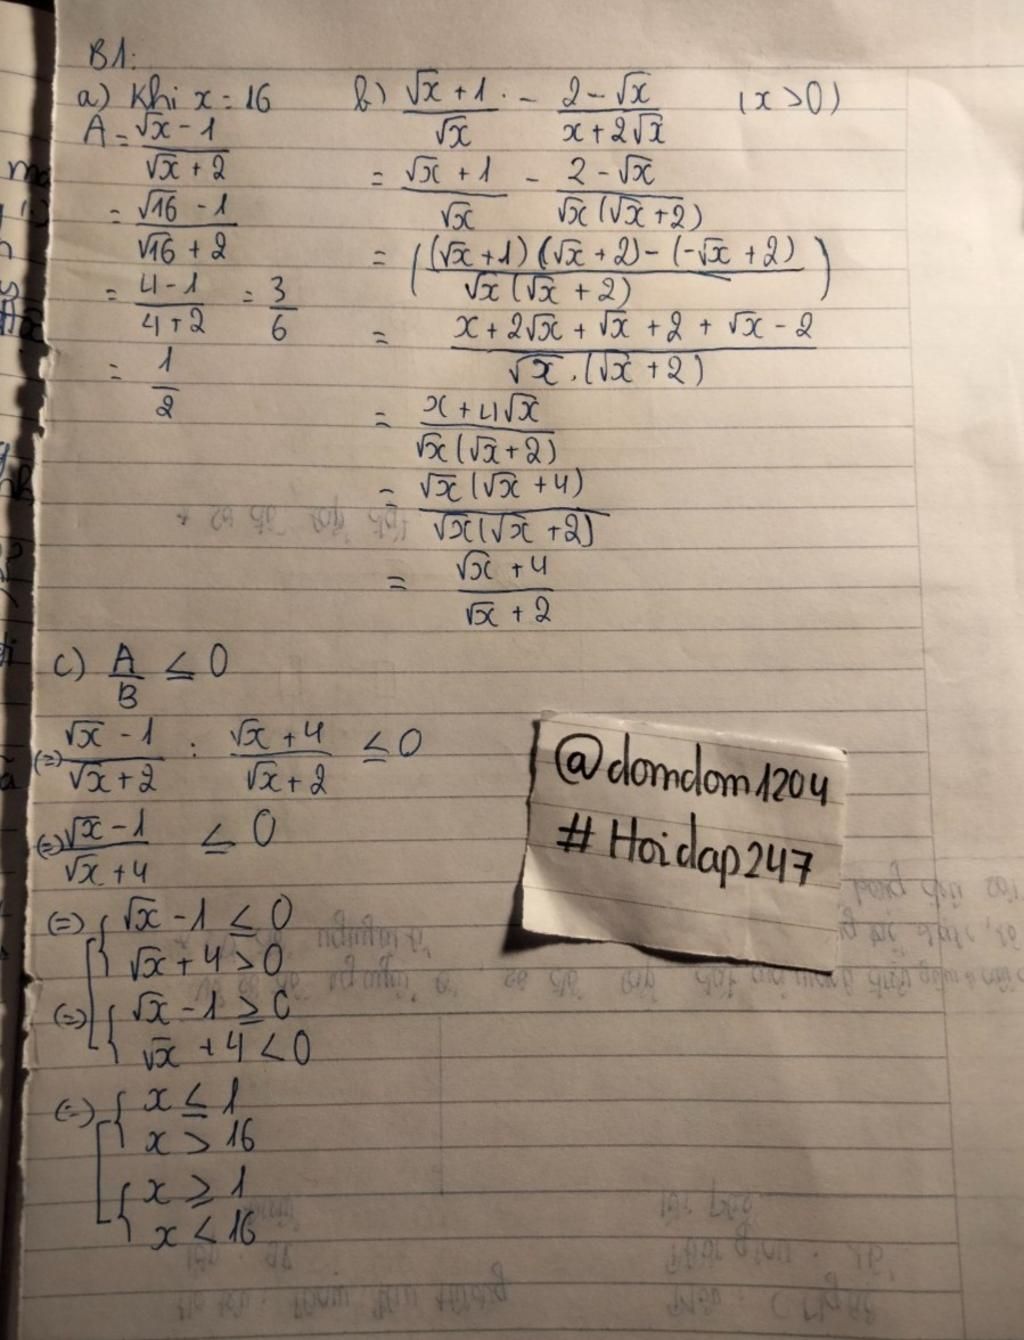 B1:
a) Khi x = 16
A = (√x - 1)/(√x + 2)
= (√16 - 1)/(√16 + 2)
= (4 - 1)/(4 + 2) = 3/6
= 1/2
b) (√x + 1)/√x - (2 - √x)/(x + 2√x) (x > 0)
= (√x + 1)/√x - (2 - √x)/(√x (√x + 2))
= (((√x + 1)(√x + 2) - (-√x + 2))/(√x (√x + 2)))
= (x + 2√x + √x + 2 + √x - 2)/(√x . (√x + 2))
= (x + 4√x)/(√x (√x + 2))
= (√x (√x + 4))/(√x (√x + 2))
= (√x + 4)/(√x + 2)
c) A/B ≤ 0
(=) (√x - 1)/(√x + 2) : (√x + 4)/(√x + 2) ≤ 0
(=) (√x - 1)/(√x + 4) ≤ 0
(=) [ { √x - 1 ≤ 0
√x + 4 > 0
(=) { √x - 1 ≥ 0
√x + 4 < 0
(=) [ { x ≤ 1
x > 16
{ x ≥ 1
x < 16
@domdom1204
# Hoidap247